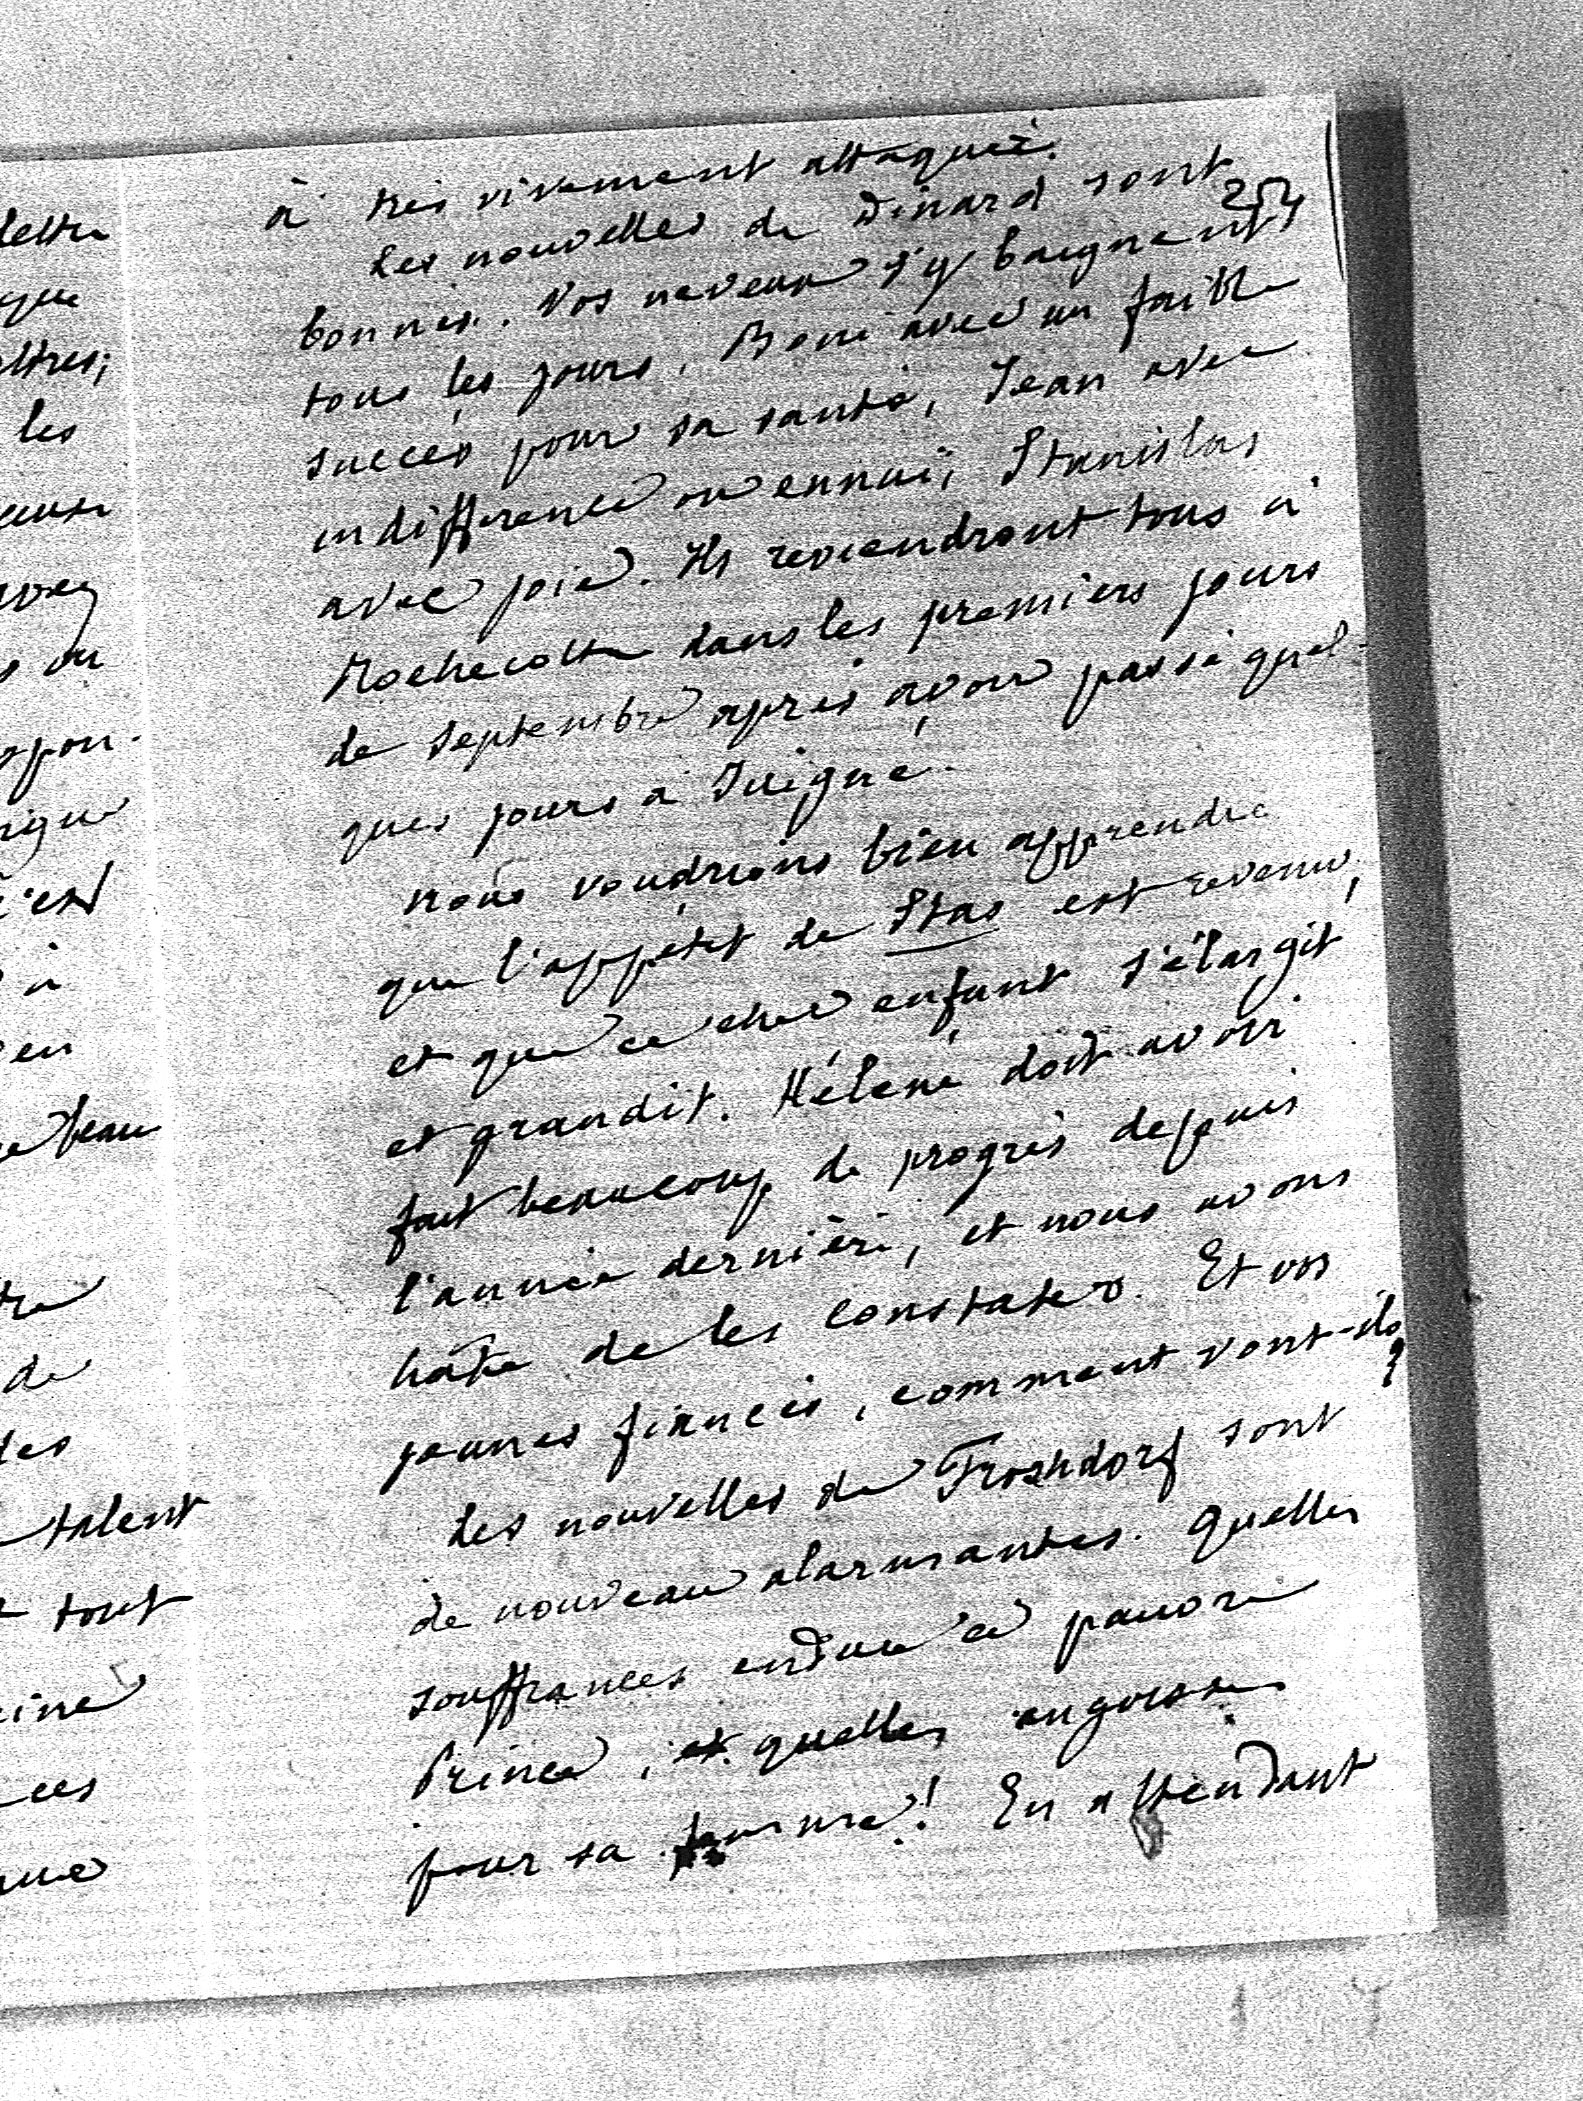 à très vivement attaqué.
Les nouvelles de Dinard sont
254
bonnes. Vos neveux s'y baignent
tous les jours, Boni avec un faible
succès pour sa santé, Jean avec
indifférence ou ennui, Stanislas
avec joie. Ils reviendront tous à
Rochecotte dans les premiers jours
de Septembre après avoir passé quel-
ques jours à Juigné.
Nous voudrions bien apprendre
que l'appétit de Stas est revenu,
et que ce cher enfant s'élargit
et grandit. Hélène doit avoir
fait beaucoup de progrès depuis
l'année dernière, et nous avons
hâte de les constater. Et vos
jeunes fiancés, comment vont-ils?
Les nouvelles de Froshdorf sont
de nouveau alarmantes. Quelles
souffrances endure ce pauvre
Prince, et quelles angoisses
pour sa femme! En attendant
lettre
que
les
en
à
en
beau
de
talent
tout